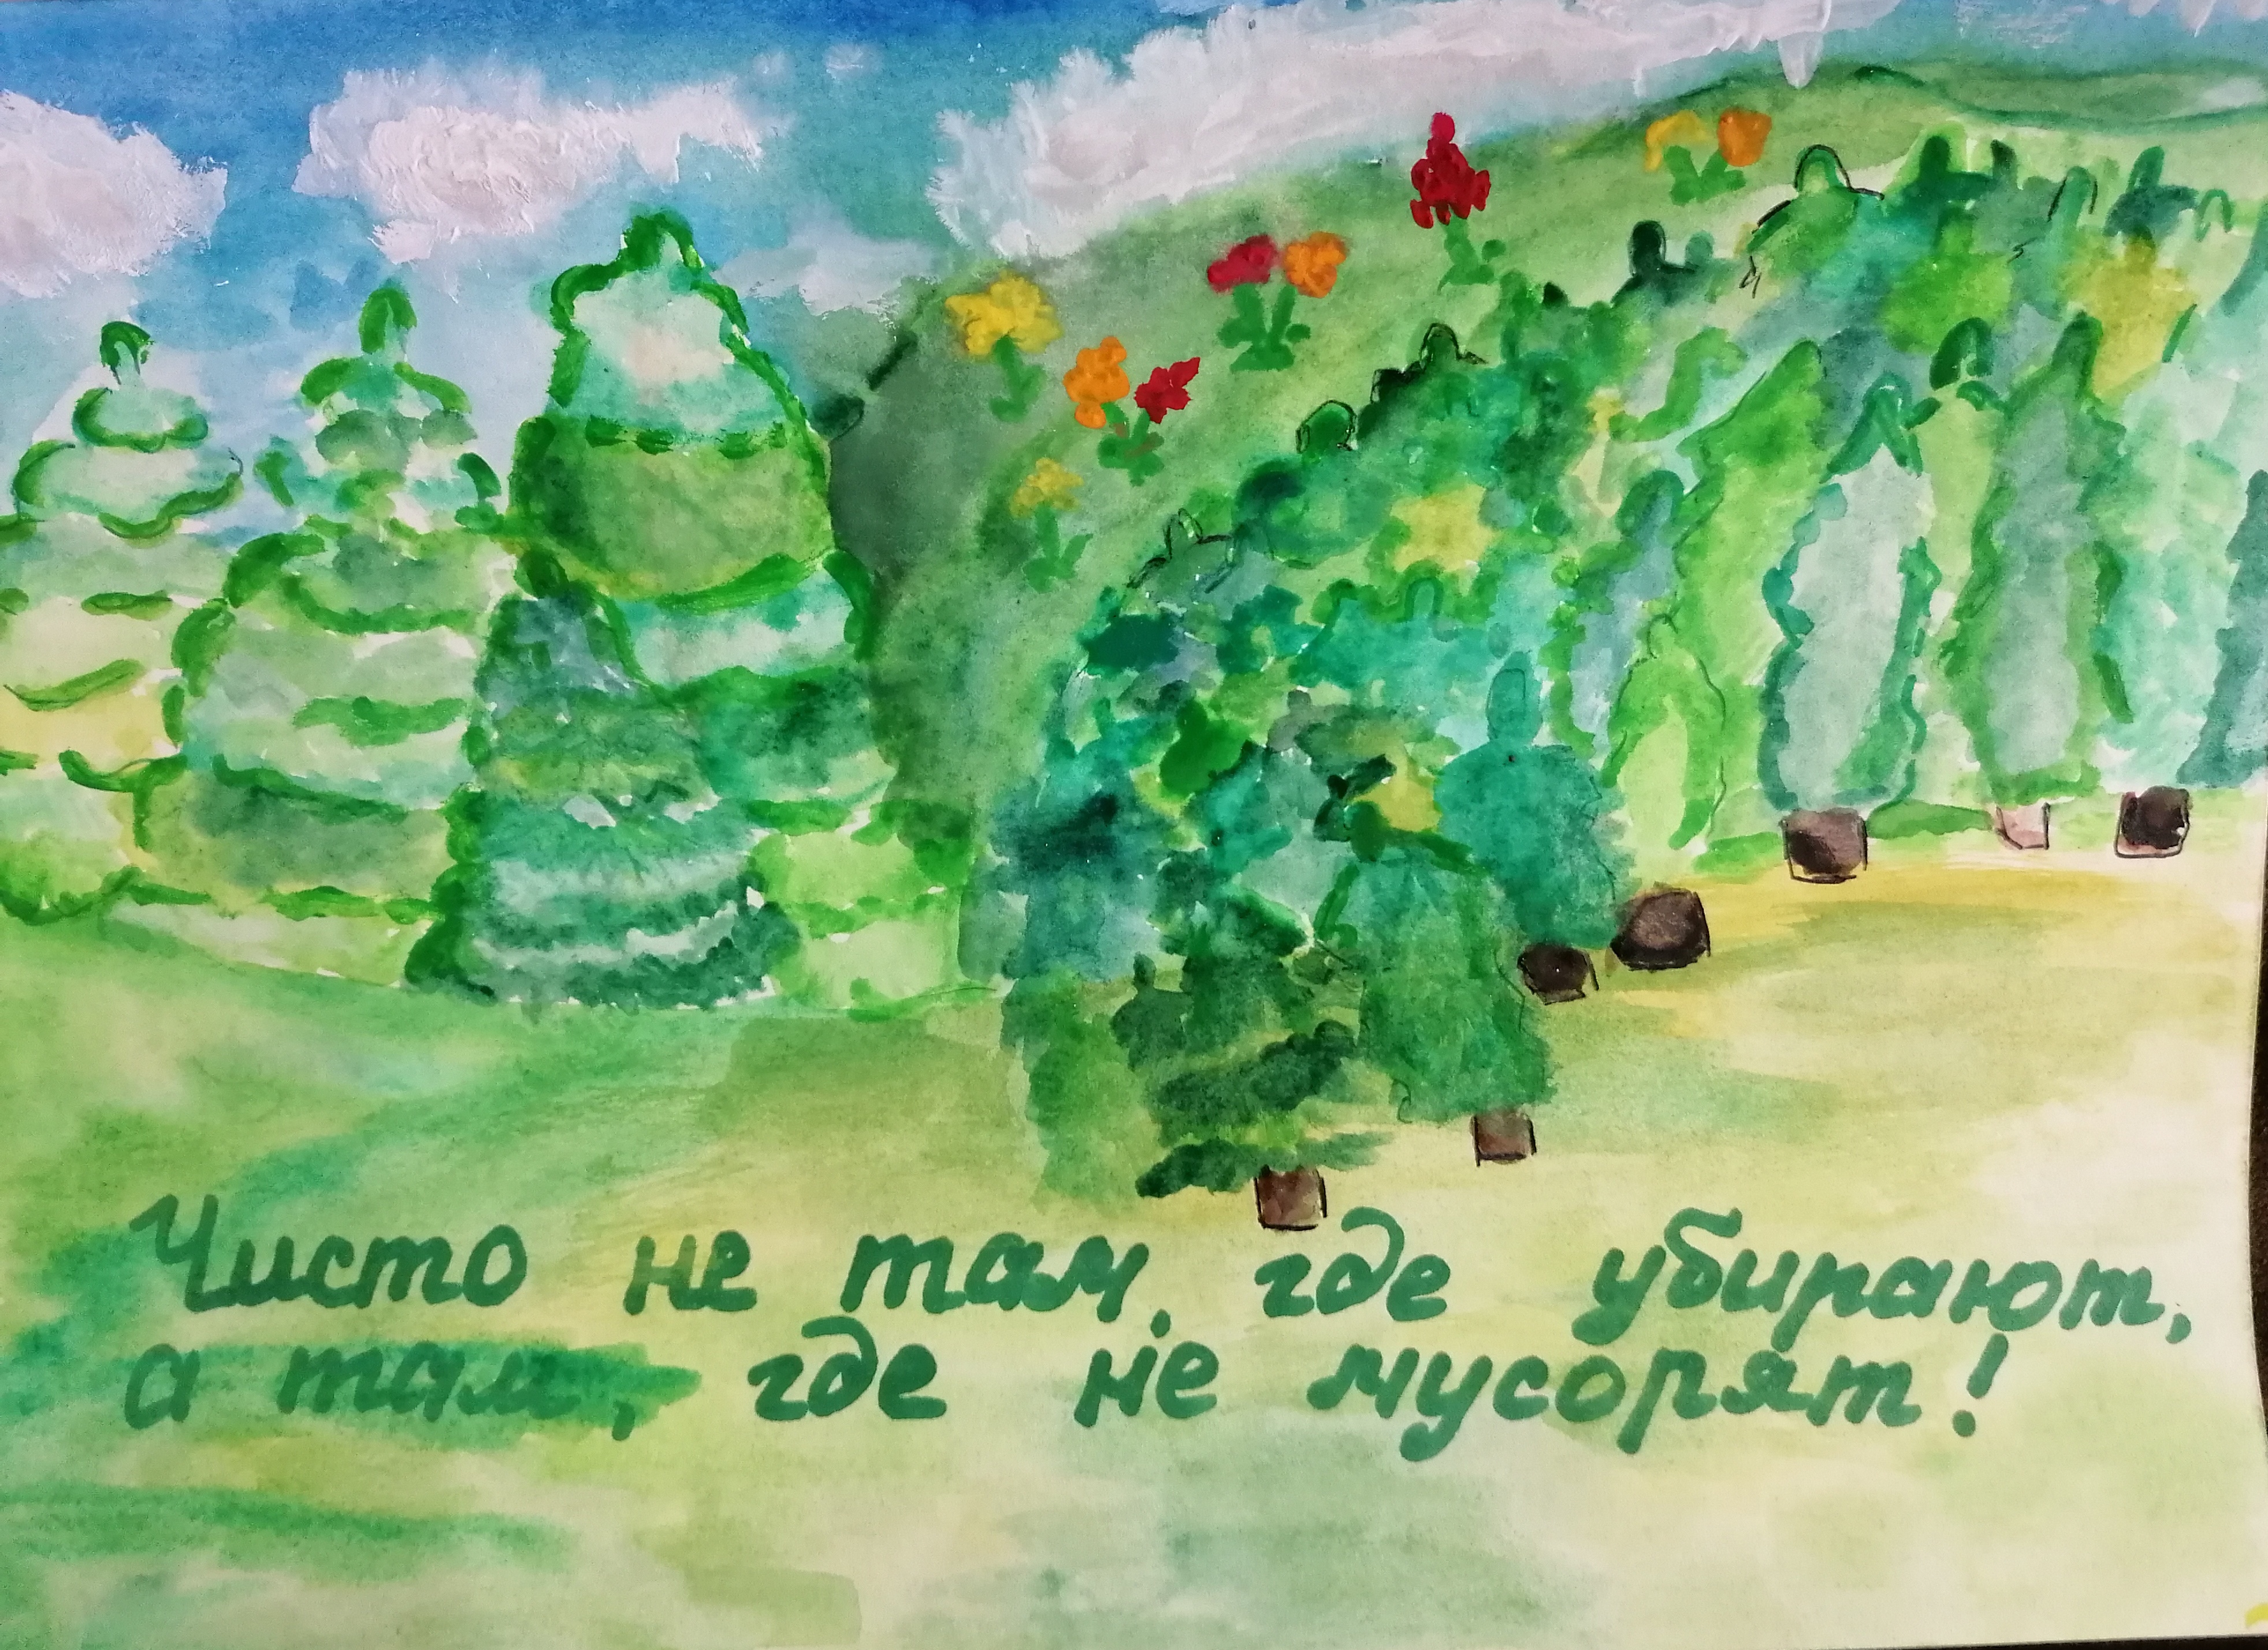 Чисто не там, где убирают,
а там, где не мусорят!